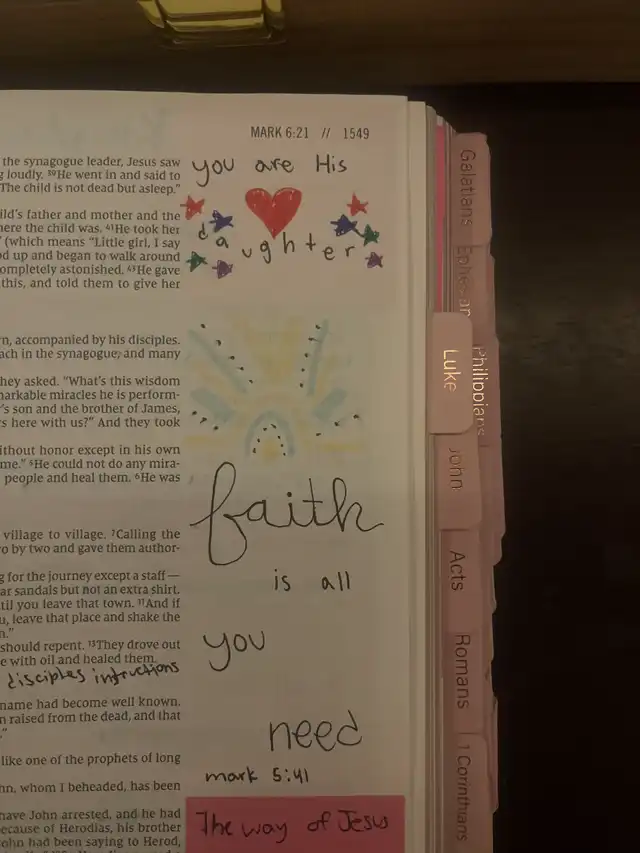 MARK 6:21 // 1549
the synagogue leader, Jesus saw
loudly. ³⁹He went in and said to
The child is not dead but asleep."
child's father and mother and the
where the child was. ⁴¹He took her
(which means "Little girl, I say
up and began to walk around
completely astonished. ⁴³He gave
this, and told them to give her
accompanied by his disciples.
in the synagogue, and many
they asked. "What's this wisdom
remarkable miracles he is perform-
son and the brother of James,
here with us?" And they took
without honor except in his own
me." ⁵He could not do any mira-
people and heal them. ⁶He was
village to village. ⁷Calling the
two by two and gave them author-
for the journey except a staff—
sandals but not an extra shirt.
until you leave that town. ¹¹And if
leave that place and shake the
should repent. ¹³They drove out
with oil and healed them.
disciples intructions
name had become well known.
raised from the dead, and that
like one of the prophets of long
whom I beheaded, has been
have John arrested, and he had
because of Herodias, his brother
John had been saying to Herod,
you are His
daughter
faith
is all
you
need
mark 5:41
The way of Jesus
Galatians
Ephesian
Philippians
Luke
John
Acts
Romans
1 Corinthians